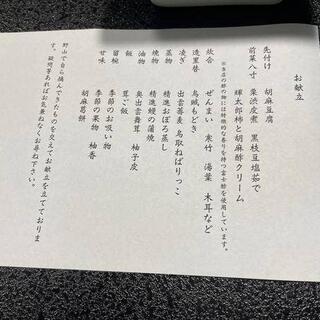 お献立
先付け 胡麻豆腐
前菜八寸 栗渋皮煮 黒枝豆塩茹で
輝太郎柿と胡麻酢クリーム
※当店の酢の物には特徴的な香りを持つ富士酢を使用しています。
炊合 ぜんまい 寒竹 湯葉 木耳など
造里替 鳥賊もどき
凌ぎ 出雲蕎麦 鳥取ねばりっこ
蒸物 精進おぼろ蒸し
焼物 精進鰻の蒲焼
油物 奥出雲舞茸 柚子皮
飯 茸ご飯
留椀 季節のお吸い物
甘味 季節の果物 柚香
胡麻葛餅
野山で自ら摘んできたものを交えてお献立を立てておりま
す。疑問等あればお気兼ねなくお尋ね下さい。